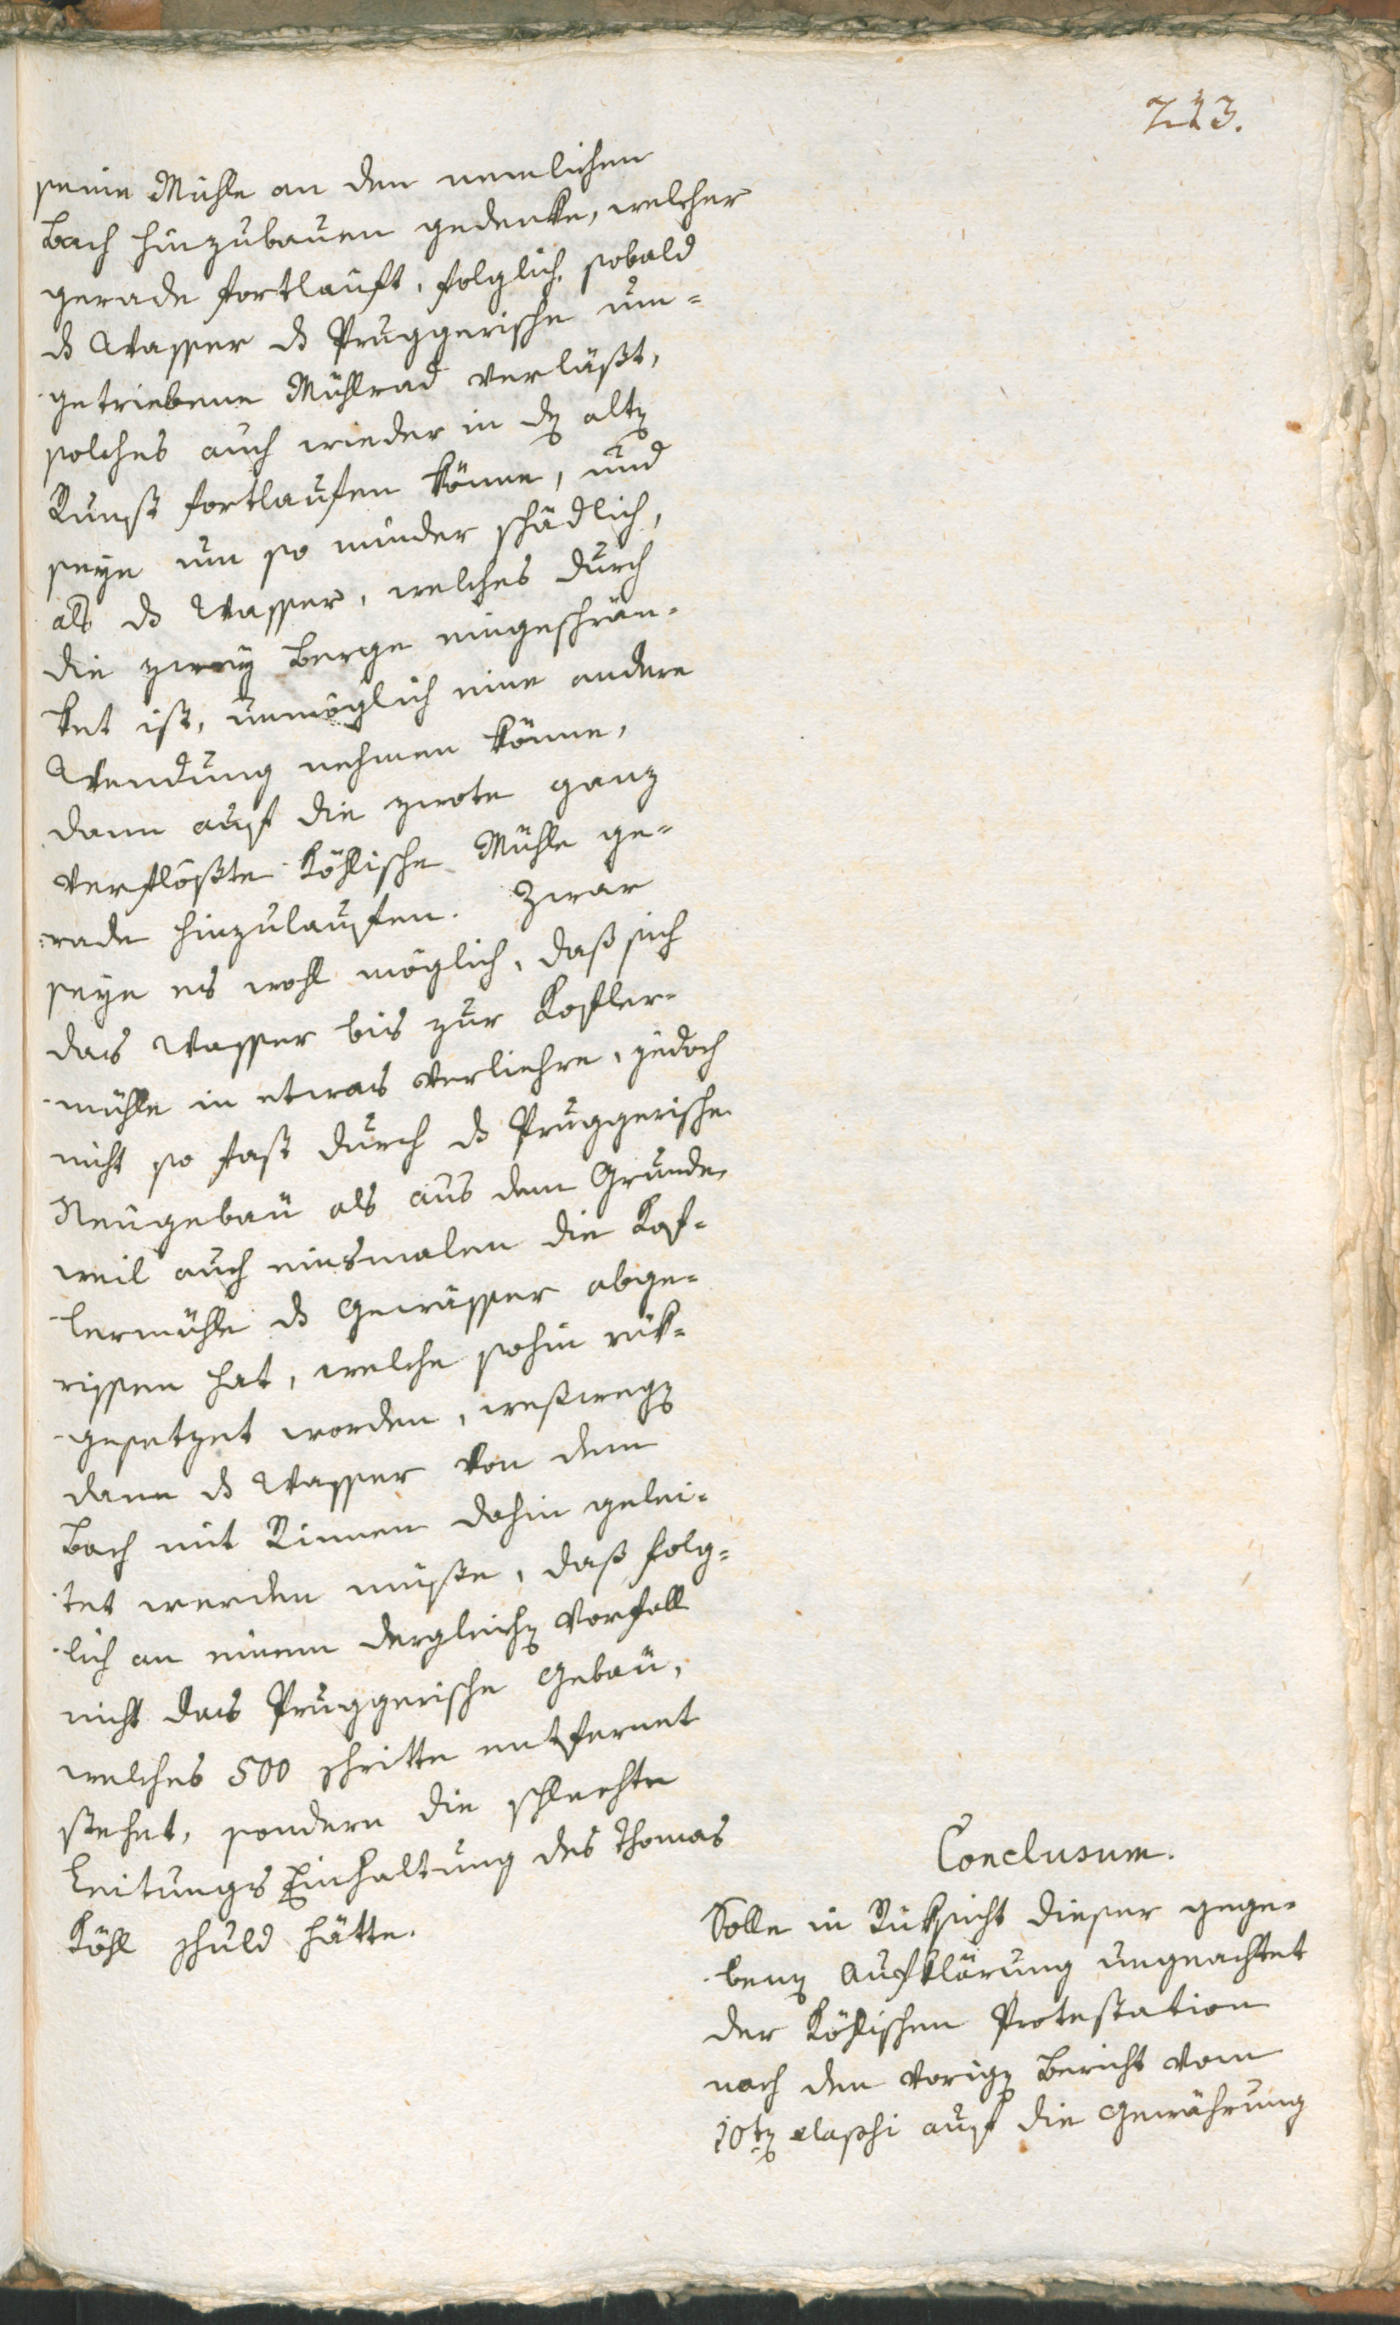 723.
seine Mühle an den nemlichen
Bach hinzubauen gedenke, welcher
gerade fortlauft, folglich, sobald
ds Wasser ds Pruggerische um-
getriebene Mühlrad verläßt,
solches auch wieder in dẽ altẽ
Runst fortlaufen könne, und
seye um so minder schädlich,
als ds Wasser, welches durch
die zweÿ Berge eingeschrän-
ket ist, unmöglich eine andere
Wendung nehmen könne,
dann auf die zwote ganz
verflößte Köhlische Mühle ge-
rade hinzulaufen. Zwar
seye es wohl möglich, daß sich
das Wasser bis zur Kofler-
mühle in etwas verliehre, jedoch
nicht so fast durch ds Pruggerische
Neugebäu als aus dem Grunde,
weil auch einsmalen die Kof-
lermühle ds Gewässer abge-
rissen hat, welche sohin rük-
gesetzet worden, weßwegẽ
dann ds Wasser von dem
Bach mit Rinnen dahin gelei-
tet werden müßte, daß folg-
lich an einem dergleichẽ Vorfall
nicht das Pruggerische Gebäu,
welches 500 schritte entfernet
stehet, sondern die schlechte
Leitungs Einhaltung des Thomas
Köhl schuld hätte.
Conclusum.
Solle in Rüksicht dieser gege-
benẽ Aufklärung ungeachtet
der Köhlischen Protestation
nach den vorigẽ Bericht vom
10tẽ elapsi auf die Gewährung